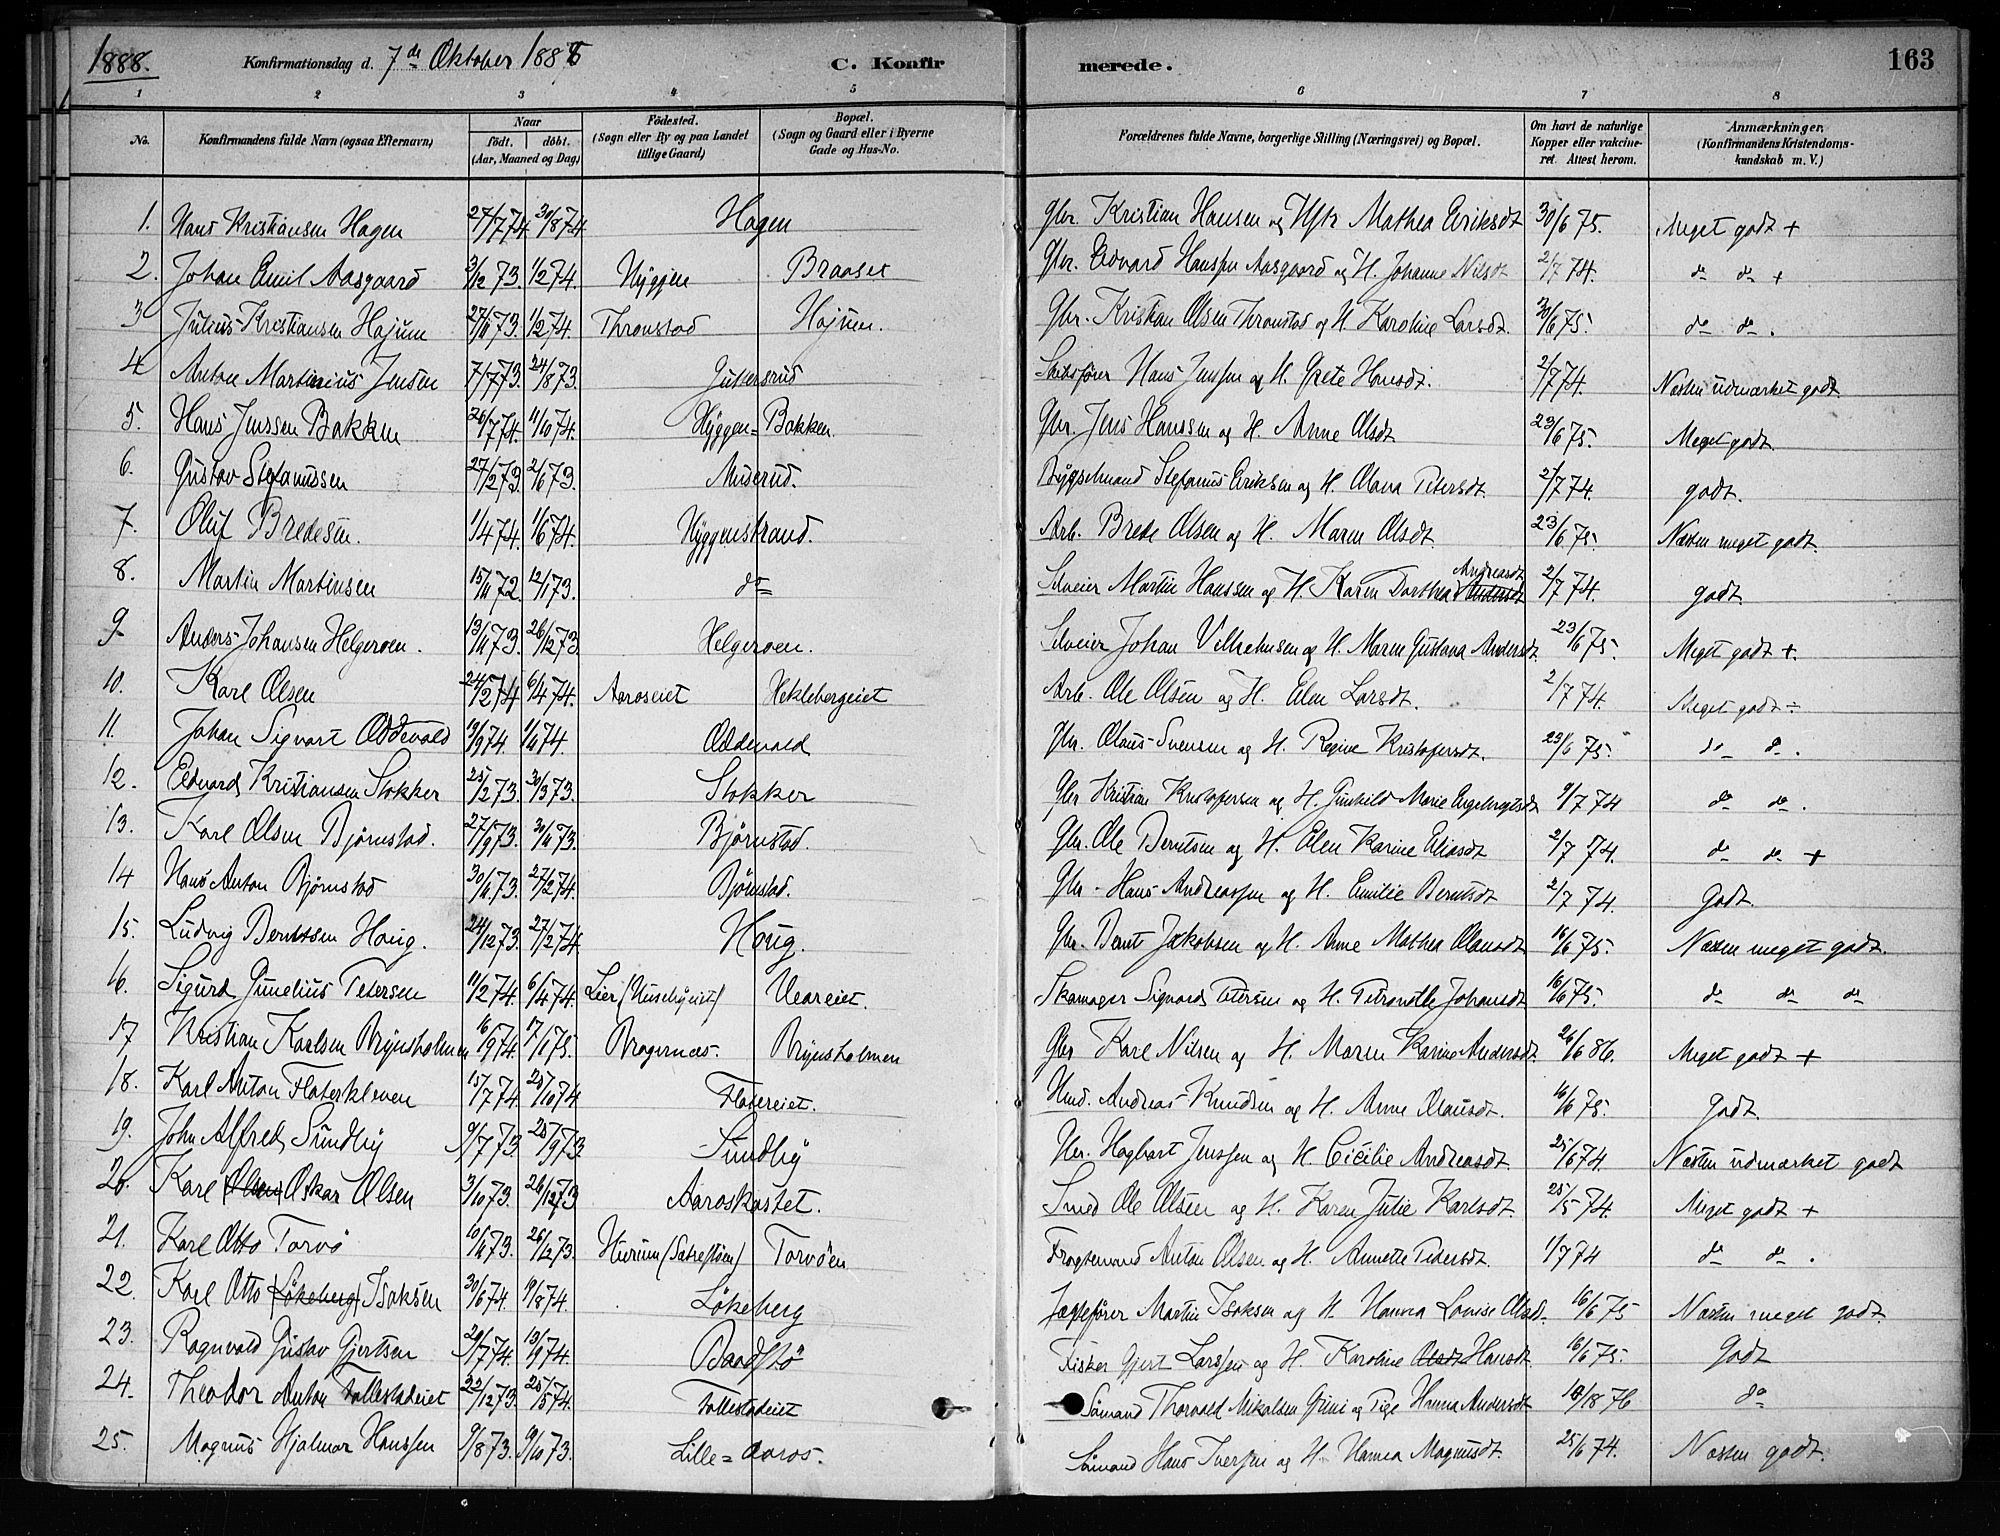 1888. Konfirmationsdag d. 7de Oktober 1888 C. Konfirmerede. 163
1 2 3 4 5 6 7 8
No. Konfirmandens fulde Navn (ogsaa Efternavn) Naar født. døbt. (Aar, Maaned og Dag) Fødested. (Sogn eller By og paa Landet tillige Gaard) Bopæl. (Sogn og Gaard eller i Byerne Gade og Hus-No. Forældrenes fulde Navne, borgerlige Stilling (Næringsvei) og Bopæl. Om havt de naturlige Kopper eller vakcineret. Attest herom. Anmærkninger. (Konfirmandens Kristendomskundskab m. V.)
1. Hans Kristiansen Hagen 27/7 74. 30/8 74. Hagen Gbr. Kristian Hansen og Hstr Mathea Eriksdt 30/6 75. Meget godt +
2. Johan Emil Aasgaard 3/12 73. 1/2 74. Hyggen Braaset Gbr. Edvard Hanssen Aasgaard og H. Johanne Nilsdt 2/7 74. do do +
3 Julius Kristiansen Højum 27/11 73. 1/2 74. Thronstad Højum. Gbr. Kristian Olsen Thronstad og H. Karoline Larsdt. 30/6 75. do do.
4 Anton Martinius Jensen 7/7 73. 24/8 73. Guttersrud Skibsfører Hans Jenssen og H. Grete Hansdt. 2/7 74. Næsten udmærket godt
5. Hans Jenssen Bakken 26/7 74. 11/10 74. Hyggen= Bakken. Gbr. Jens Hanssen og H. Anne Olsdt 23/6 75. Meget godt.
6. Gustav Stefanussen 27/2 73. 2/6 73. Muserud. Bygselmand Stefanus Eriksen og H. Olava Petersdt 2/7 74. godt.
7. Oluf Bredesen. 1/4 74. 1/6 74. Hyggenstrand. Arb. Brede Olsen og H. Maren Olsdt. 23/6 75. Næsten meget godt.
8. Martin Martinsen 15/11 72. 12/1 73. do Selveier Martin Hanssen og H. Karen Dorthea Andreasdt 2/7 74. godt.
9 Anders Johansen Helgeroen. 13/11 73. 26/12 73. Helgeroen. Selveier Johan Vilhelmsen og H. Maren Gustava Andersdt. 23/6 75. Meget godt +.
10. Karl Olsen 24/2 74 6/4 74. Aaroseiet Heklebergeiet Arb. Ole Olsen og H. Elen Larsdt. 2/7 74. Meget godt ÷
11. Johan Sigvart Oddevald 19/9 74. 1/11 74. Oddevald Gbr. Olaus Svensen og H. Regine Kristofersdt. 23/6 75. do do.
12. Edvard Kristiansen Stokker 25/2 73. 30/3 73. Stokker Gbr Kristian Kristofersen og H. Gunhild Marie Engebregtsdt 9/7 74 do do.
13. Karl Olsen Bjørnstad. 27/9 73. 30/11 73. Bjørnstad. Gbr. Ole Berntsen og H. Elen Karine Eliasdt 2/7 74. do do +
14 Hans Anton Bjørnstad 30/11 73. 27/2 74. Bjørnstad. Gbr. Hans Andreassen og H. Emilie Berntsdt 2/7 74. Godt.
15. Ludvig Berntssen Haug. 24/12 73. 27/2 74. Haug. Gbr. Bernt Jakobsen og H. Anne Mathea Olausdt 16/6 75. Næsten meget godt.
16. Sigurd Gunelius Petersen 11/2 74. 6/4 74. Lier (Husebyeiet) Veareiet. Skomager Sigvard Petersen og H. Petronelle Johansdt 16/6 75. do do do
17 Kristian Karlsen Brynsholmen 16/9 74. 17/1 75. Bragernæs. Brynsholmen Gbr Karl Nilsen og H. Maren Karine Andersdt. 26/6 86. Meget godt +
18. Karl Anton Flaterkleven 15/7 74. 25/10 74 Flatereiet. Hmd. Andreas Knudsen og H. Anne Olausdt. 16/6 75. Godt.
19. John Alfred Sundby 9/7 73 25/9 73 Sundby Gbr. Hagbart Jenssen og H. Cicilie Andreasdt 25/6 74. Næsten udmærket godt
20. Karl (Olsen) Oskar Olsen 3/10 73. 26/12 73 Aaroskastet. Smed Ole Olsen og H. Karen Julie Karlsdt. 25/5 74. Meget godt +
21. Karl Otto Torvø 10/11 73. 26/12 73. Hurum (Sætrestøen) Torvøen Fragtemand Anton Olsen og H. Annette Pedersdt. 1/7 74 do do.
22. Karl Otto (Løkeberg) Isaksen 30/6 74. 9/8 74. Løkeberg Jægtefører Martin Isaksen og H. Hanna Lovise Olsdt. 16/6 75 Næsten meget godt.
23. Ragnvald Gustav Gjertsen 29/7 74. 13/9 74. Baadstø Fisker Gjert Larssen og H. Karoline Olsdt Hansdt. 16/6 75. Godt
24. Theodor Anton Follestadeiet 22/12 73. 25/5 74. Follestadeiet Sømand Thorvald Mikalsen Gjini og Pige Hanna Andersdt 18/18 76 do
25. Magnus Hjalmar Hanssen 9/8 73. 9/10 73. Lille=Aaros. Sømand Hans Iversen og H. Hanna Magnusdt. 25/6 74. Næsten godt.